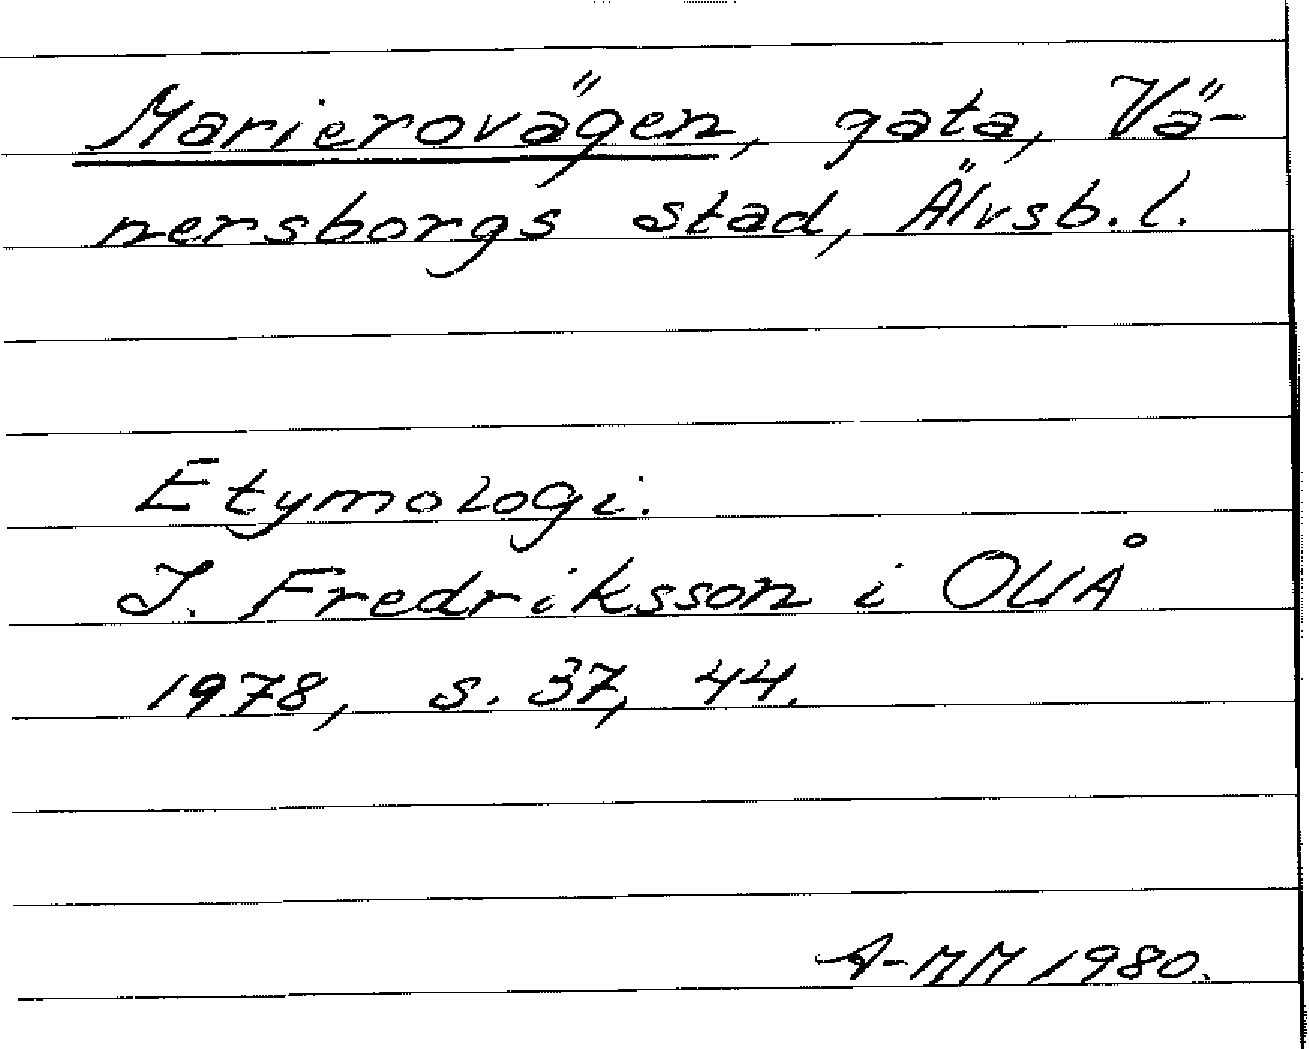 Marierovägen, gata, Vä-
nersborgs stad, Älvsb. l.
Etymologi:
I. Fredriksson i OUÅ
1978, s. 37, 44.
A-MM 1980.